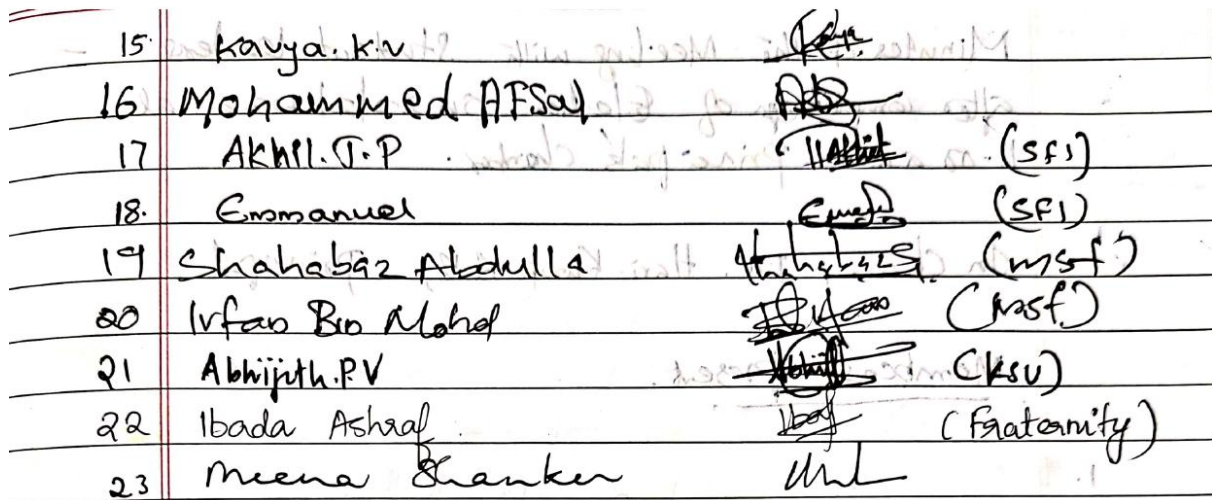 15. Kavya. K.V
16 Mohammed AFSal
17 Akhil. J. P (SFI)
18. Emmanuel (SFI)
19 Shahabaz Abdulla (msf)
20 Irfan Bin Mohd (msf)
21 Abhijith. P.V (KSU)
22 Ibada Ashraf (Fraternity)
23 Meena Shanker